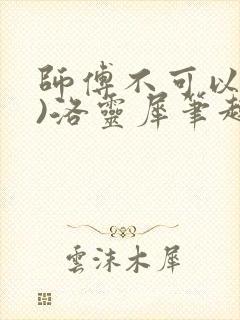 師傅不可以
)洛靈犀筆趣
雲沫木犀